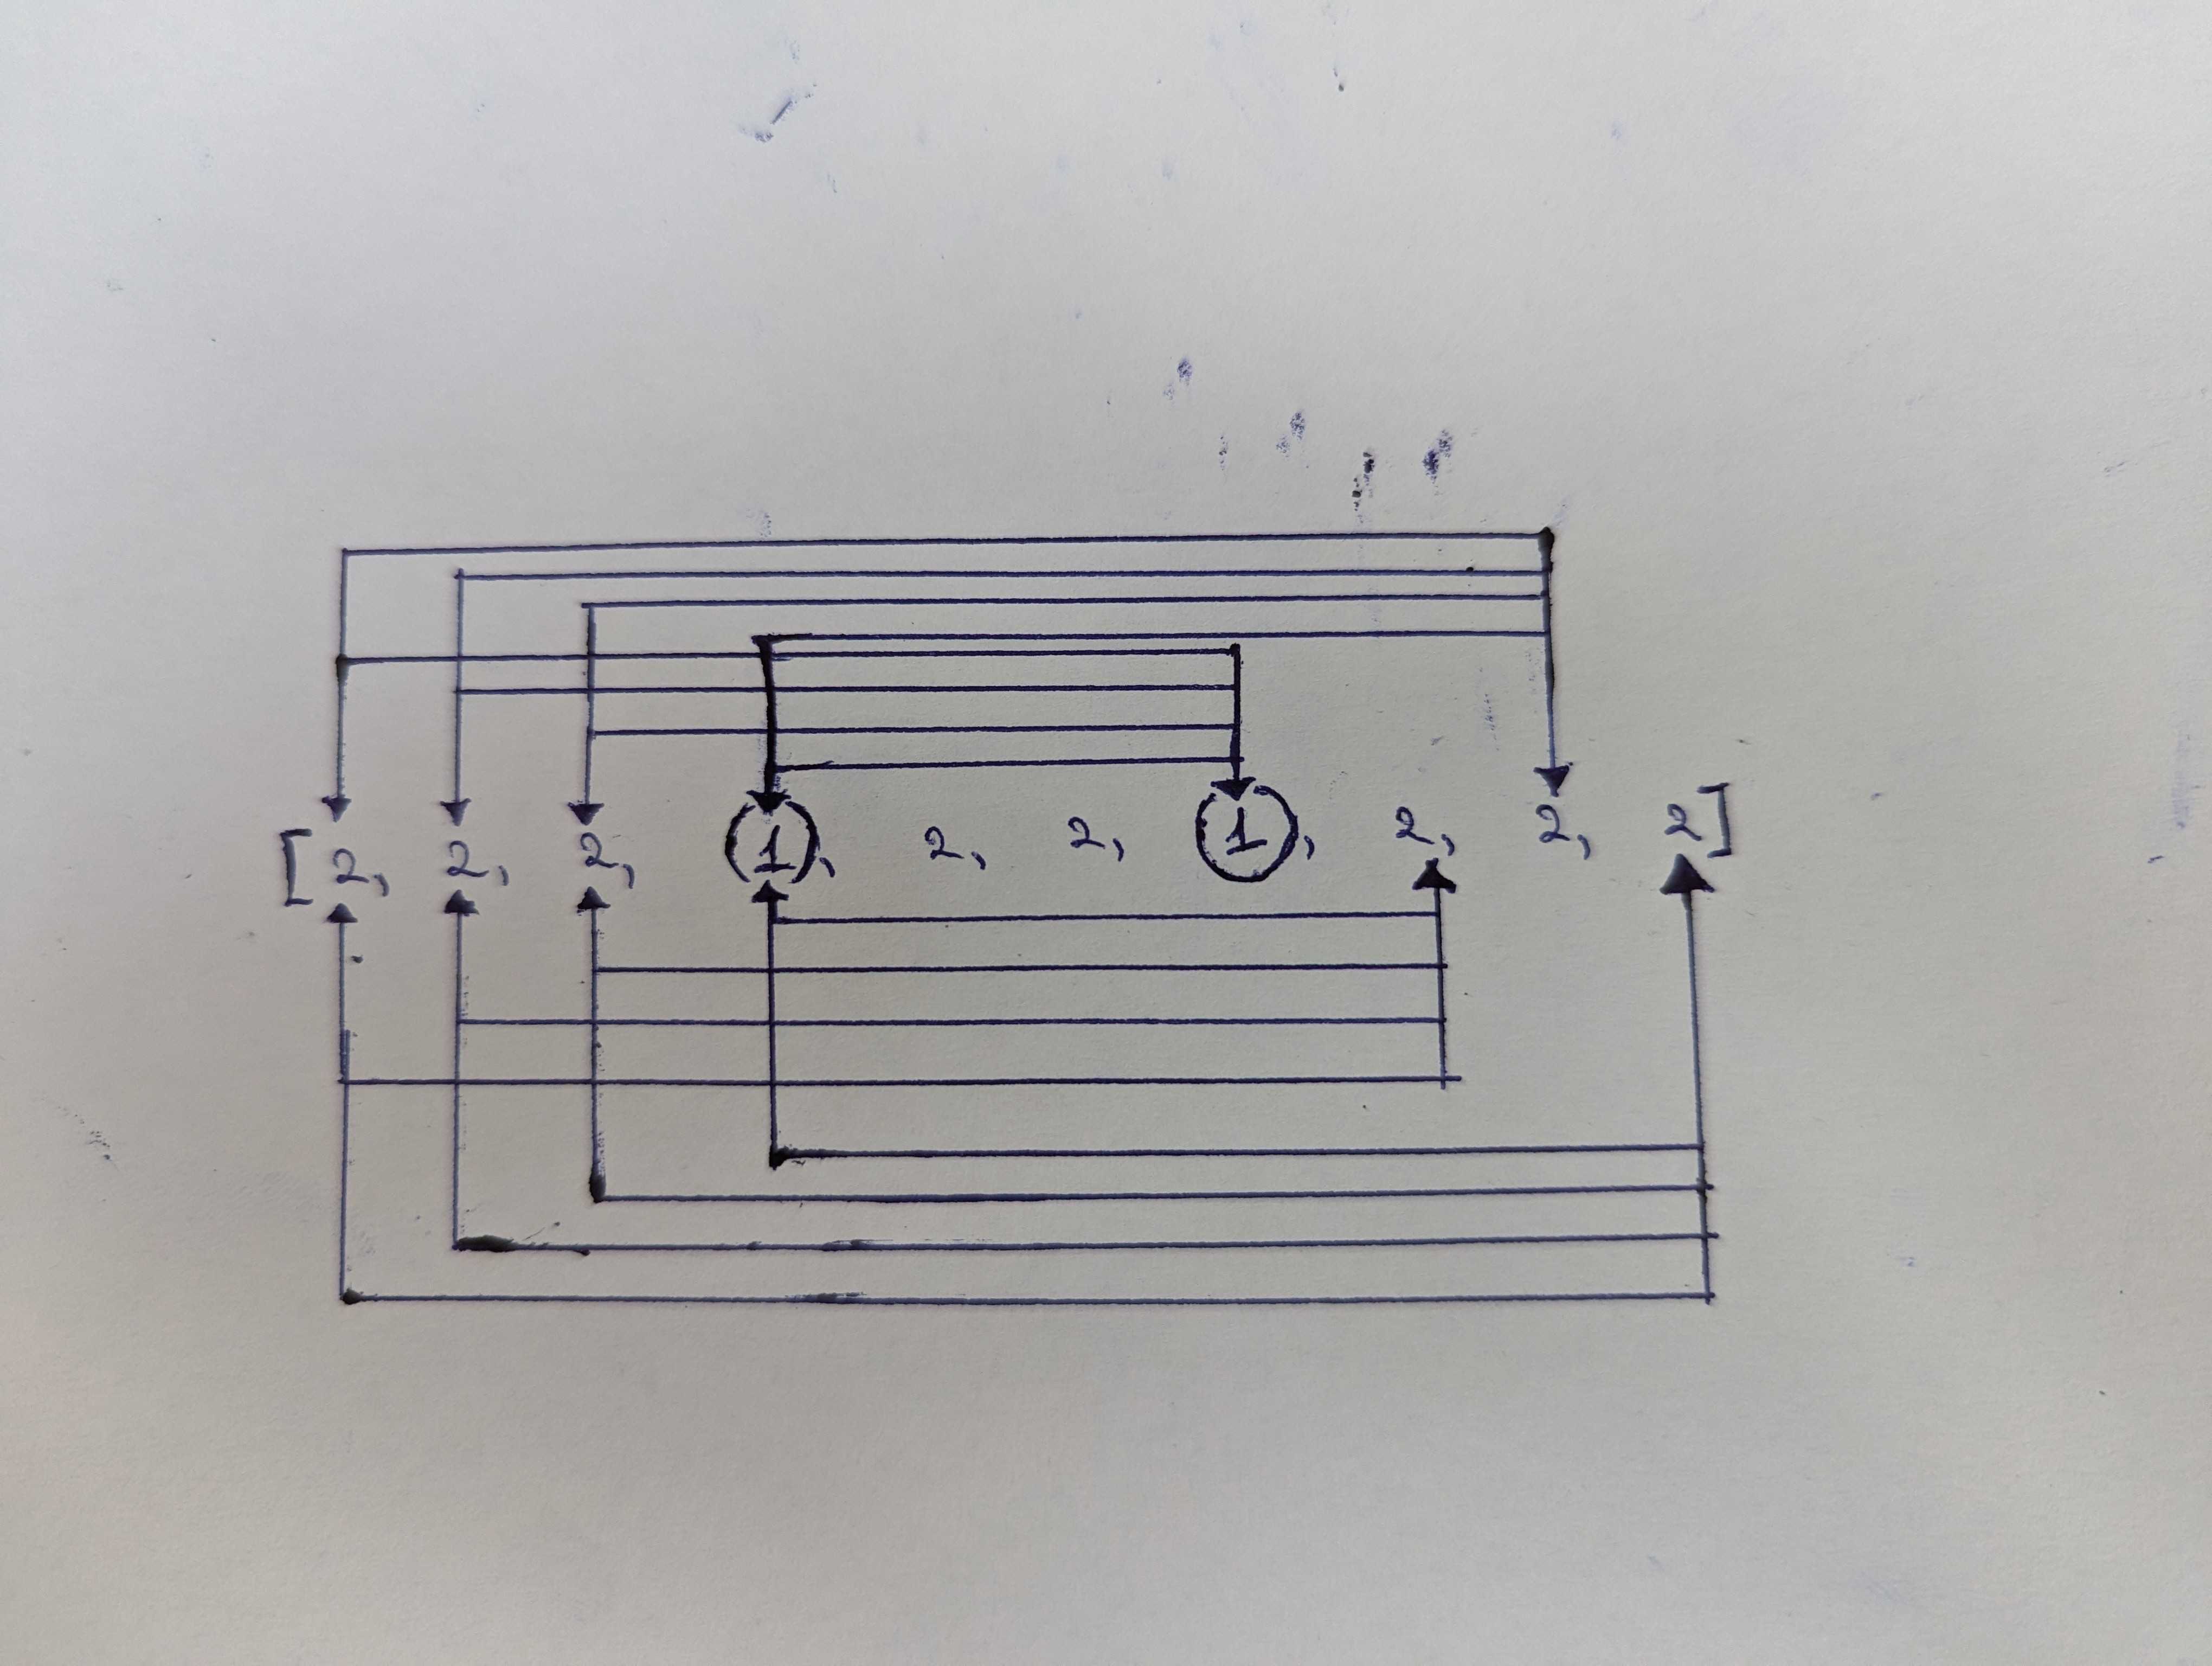 [2, 2, 2, 1, 2, 2, 1, 2, 2, 2]